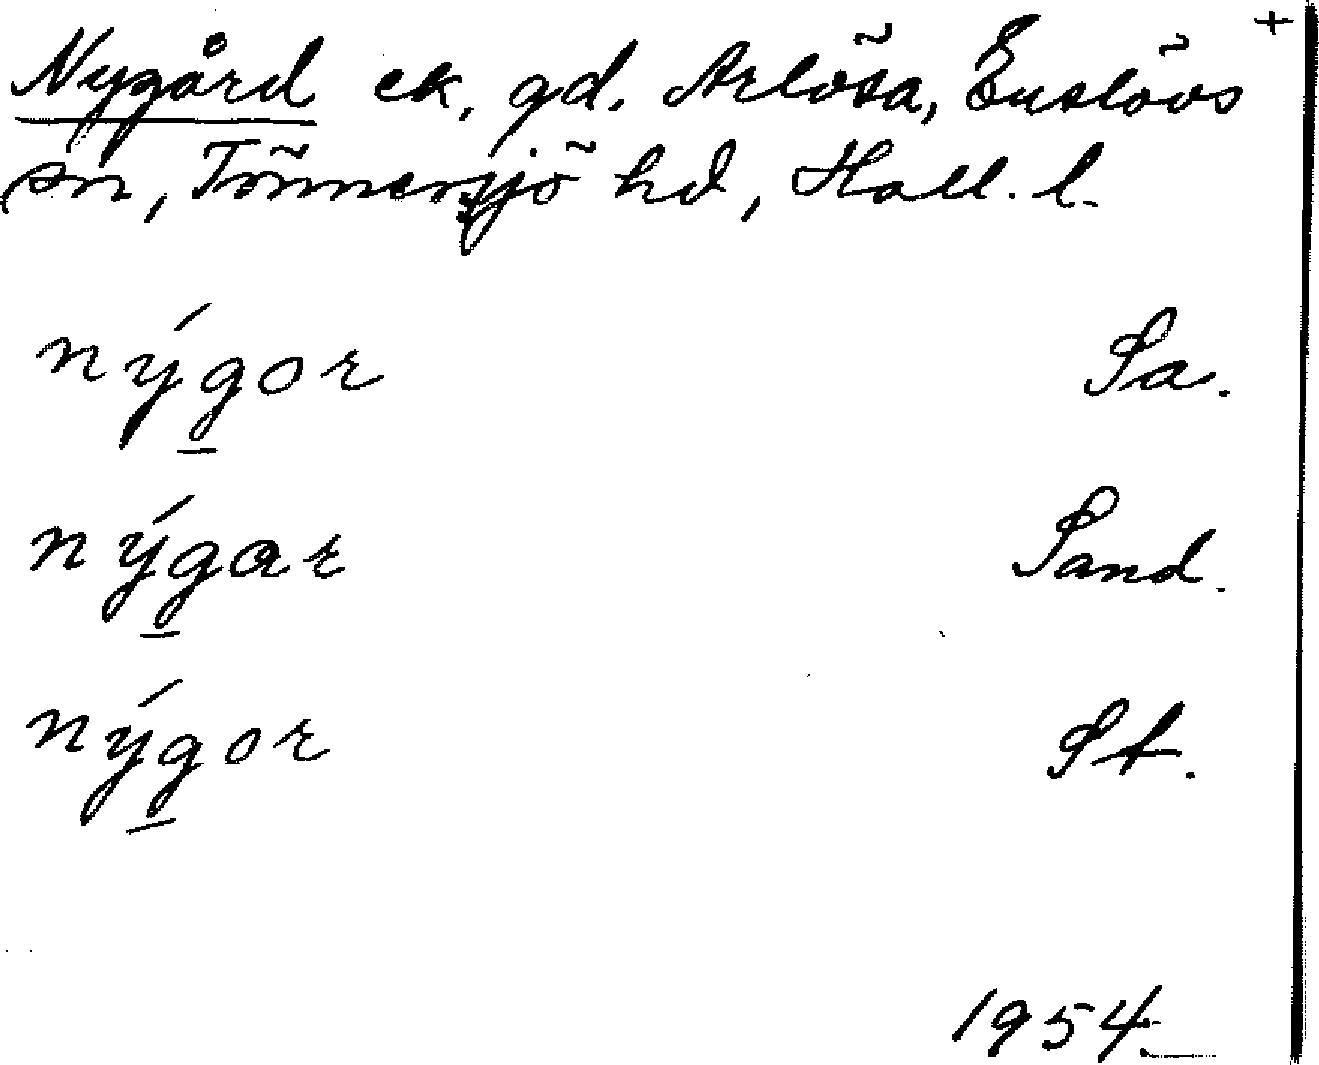 +
Nygård ek. gd. Arlösa, Euslövs
sn, Tönnersjö hd, Hall. l.
nýgor Sa.
nýgar Sand.
nýgor St.
1954.